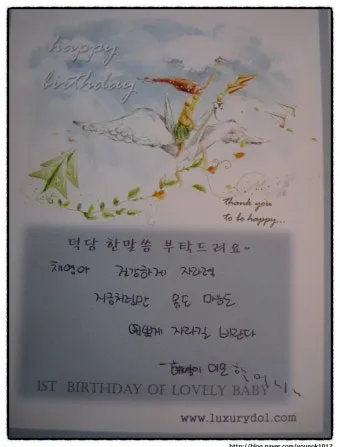 happy
birthday
Thank you
To be happy...
덕담 한말씀 부탁드려요~
채영아 건강하게 자라렴
지금처럼만 몸도 마음도
예쁘게 자라길 바란다
이모 할머니
1ST BIRTHDAY OF LOVELY BABY
www.luxurydol.com
http://blog.naver.com/younok1017